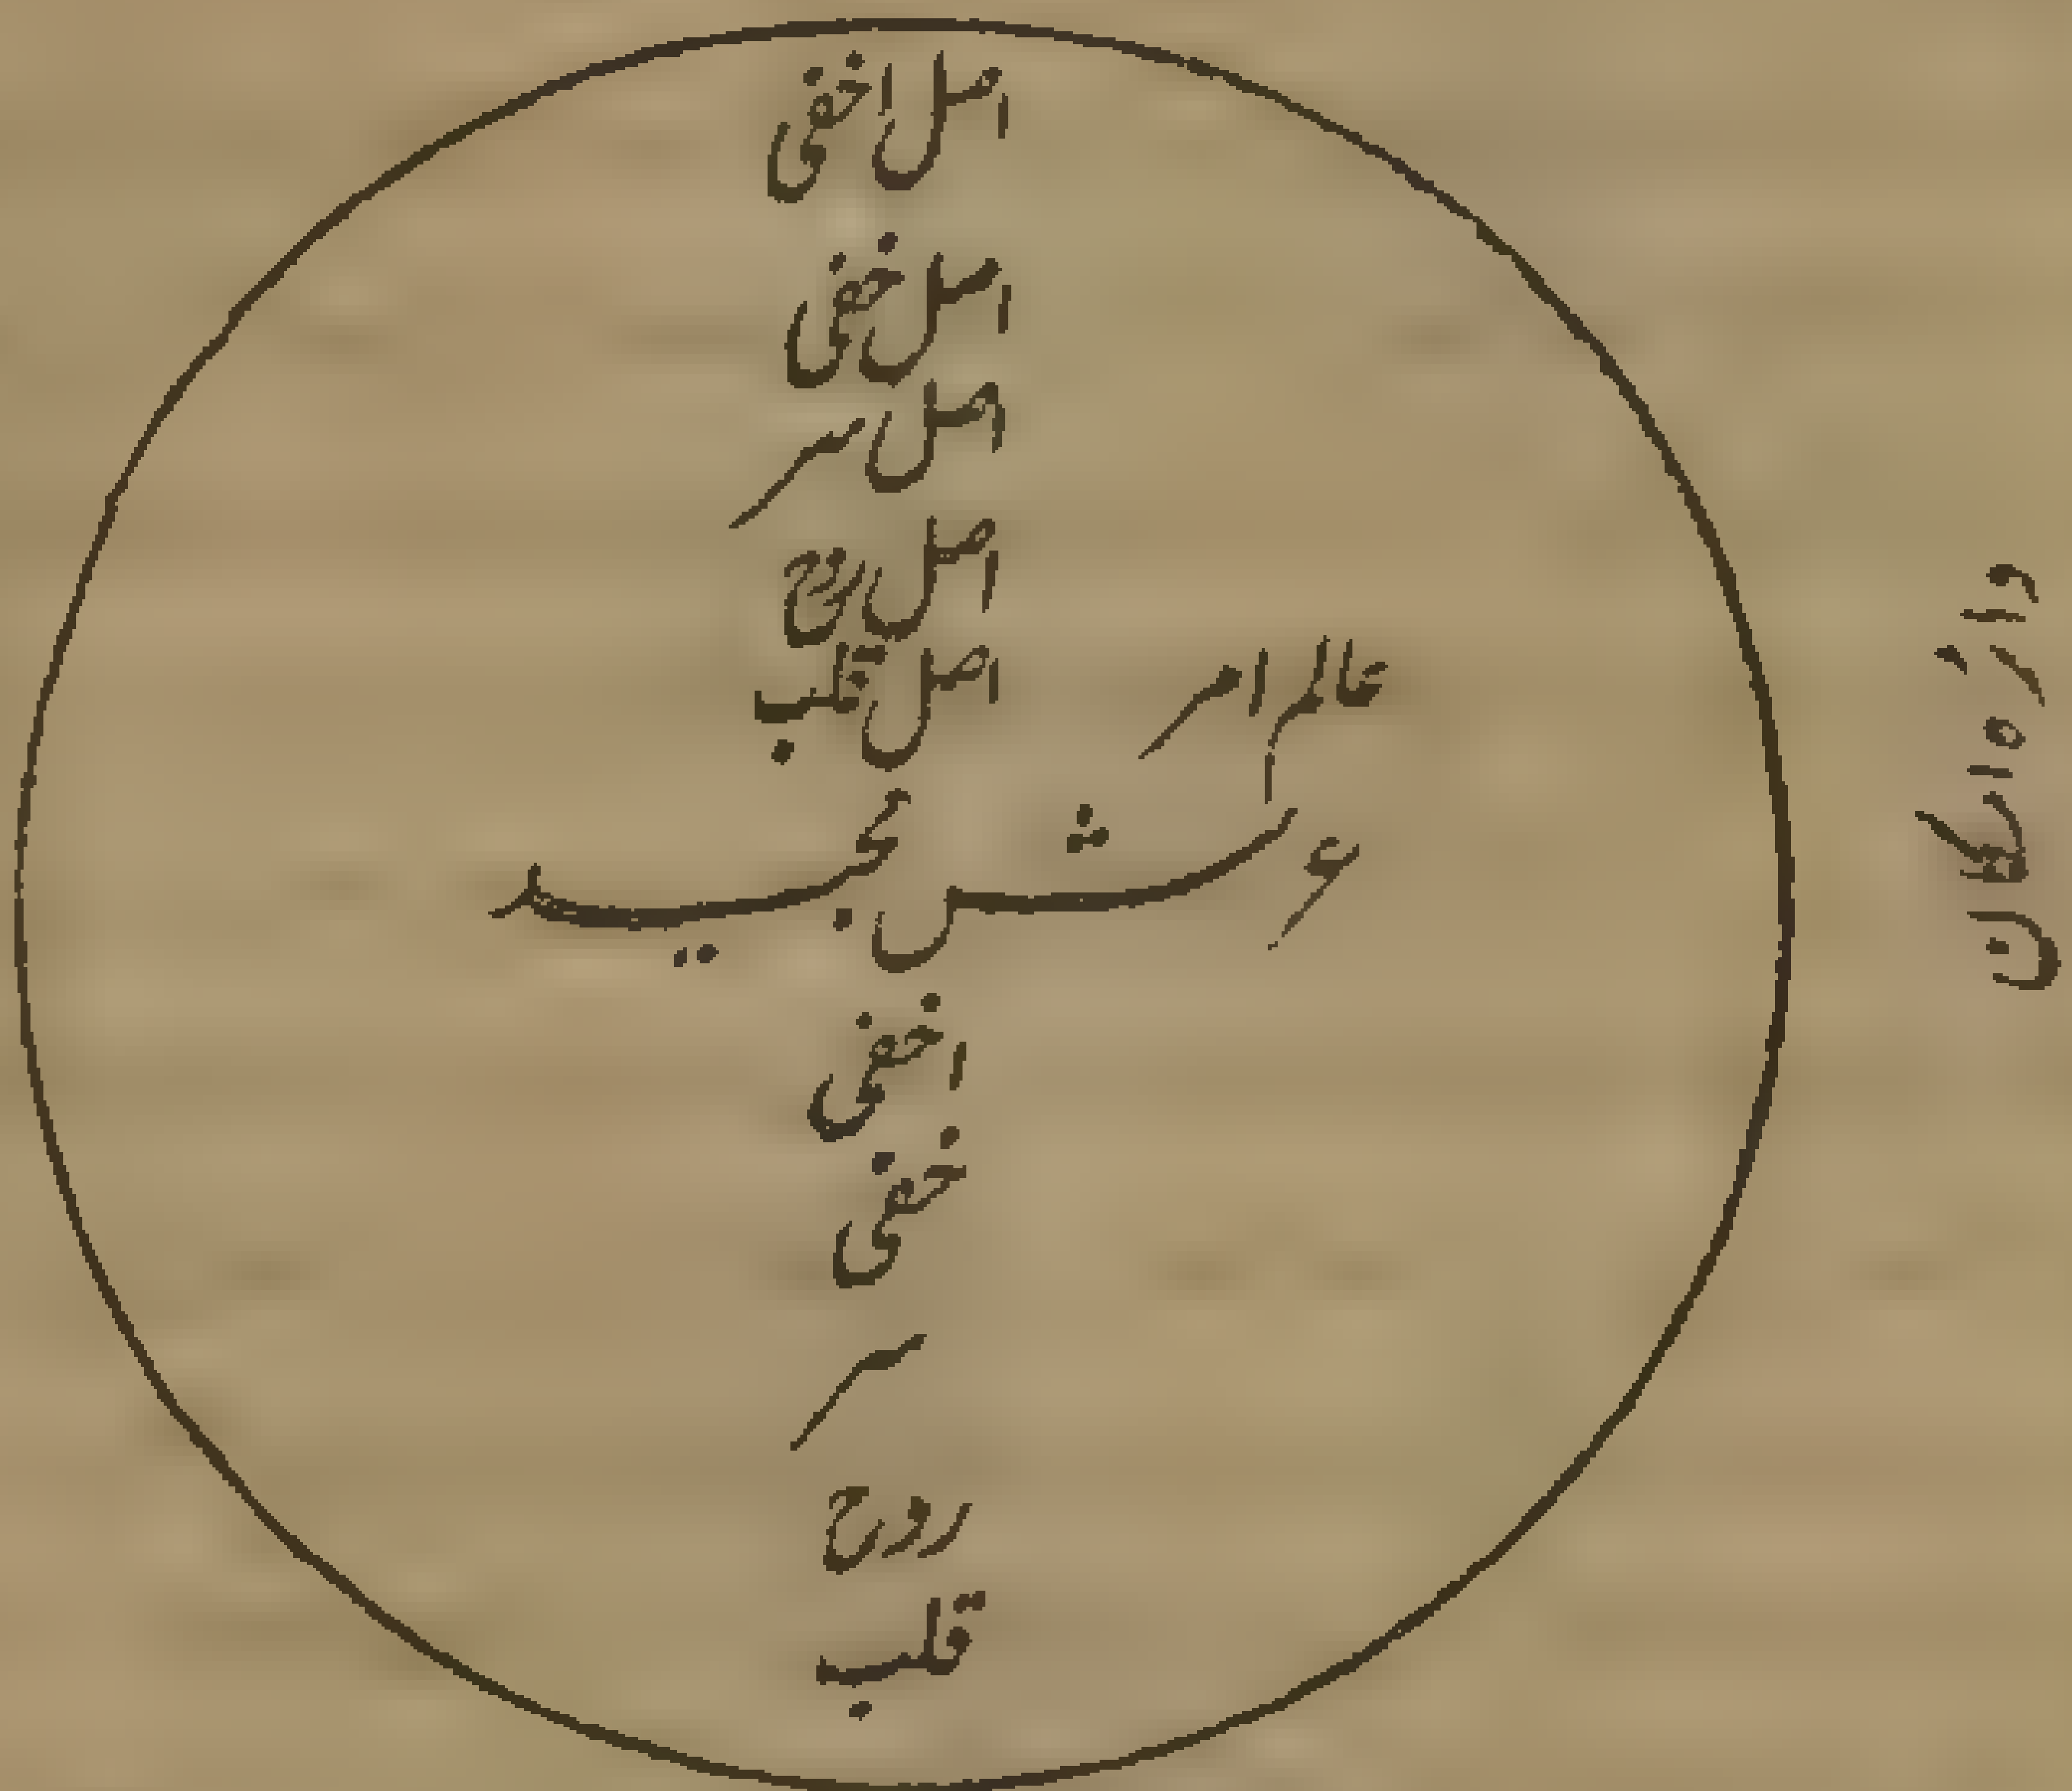 اصل اخفی
اصل خفی
اصل سر
اصل روح
اصل قلب
عالم امر
عرش مجید
اخفی
خفی
سر
روح
قلب
دائرہ امکان